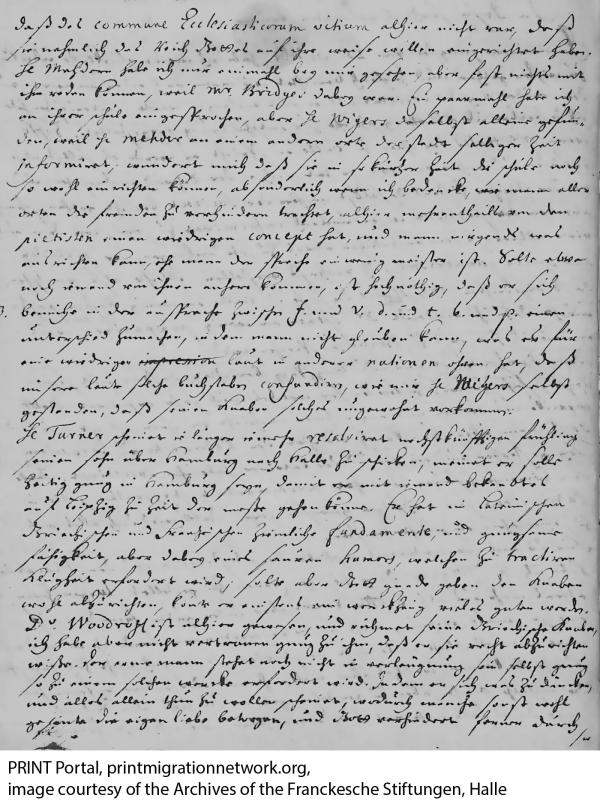 daß das commune Ecclesiasticorum vitium alhier nicht war, daß
sie nehmlich das Reich Gottes auf ihre weise wollen eingerichtet haben.
H Mehdern habe ich nur einmahl bey mir gesehen, aber fast nichts mit
ihm reden können, weil Mr. Bridges dabey war. Ein paarmahl habe ich
an ihrer schule eingesprochen, aber H Wigers daselbst alleine gefun-
den, weil H Mehder an einem andern orte der stadt selbiger Zeit
informiret, wundert mich daß sie in so kurtzer Zeit die schule noch
so wohl einrichten können, absonderlich wenn ich bedencke, wie mann aller
orten die fremden zu verhindern trachtet, alhier mehrentheils von den
pietisten einen wiedrigen concept hat, und mann nirgends was
ausrichten kann, ehe mann der sprache ein wenig meister ist. Solte etwa
noch iemand von ihnen anhero kommen, ist hochnöthig, daß er sich
bemühe in der aussprache zwischen f. und v. d. und t. b. und p. einen
unterschied zumachen, indem mann nicht glauben kann, was es für
eine wiedrigen impression laut in anderer nationen ohren hat, daß
unsere leute solche buchstaben confundiren, wie mir H Wigers selbst
gestanden, daß seinen Knaben solches ungereimt vorkomme.
H Turner scheinet ie länger ie mehr resolviret nechstkünfftigen frühling
seinen sohn über Hamburg nach Halle zu schicken, meinet er solle
zeitig gnug in Hamburg seyn, damit er mit iemand bekandtes
auf Leipzig zu Zeit der messe gehen könne. Er hat im Lateinischen
Griechischen und Frantzösischen ziemliche fundamente, und gnugsame
fähigkeit, aber dabey eines sauren humors, welchen zu tractiren
Klugheit erfordert wird; solte aber Gott gnade geben den Knaben
wohl abzurichten, könte er einstens ein werckzeug vieles guten werden.
D. Woodroff ist alhier gewesen, und rühmet seine Griechische Knaben,
ich habe aber nicht vertrauen gnug zu ihm, daß er sie recht abzurichten
wisse. Der arme mann stehet noch nicht in verleugnung sein selbst gnug
so zu einem solchen wercke erfordert wird. Indem er sich was zu düncken,
und alles allein thun zu wollen scheinet, wodurch manche sonst wohl
gesinte die eigen liebe betrogen, und Gott verhindert ferner durch
PRINT Portal, printmigrationnetwork.org,
image courtesy of the Archives of the Franckesche Stiftungen, Halle